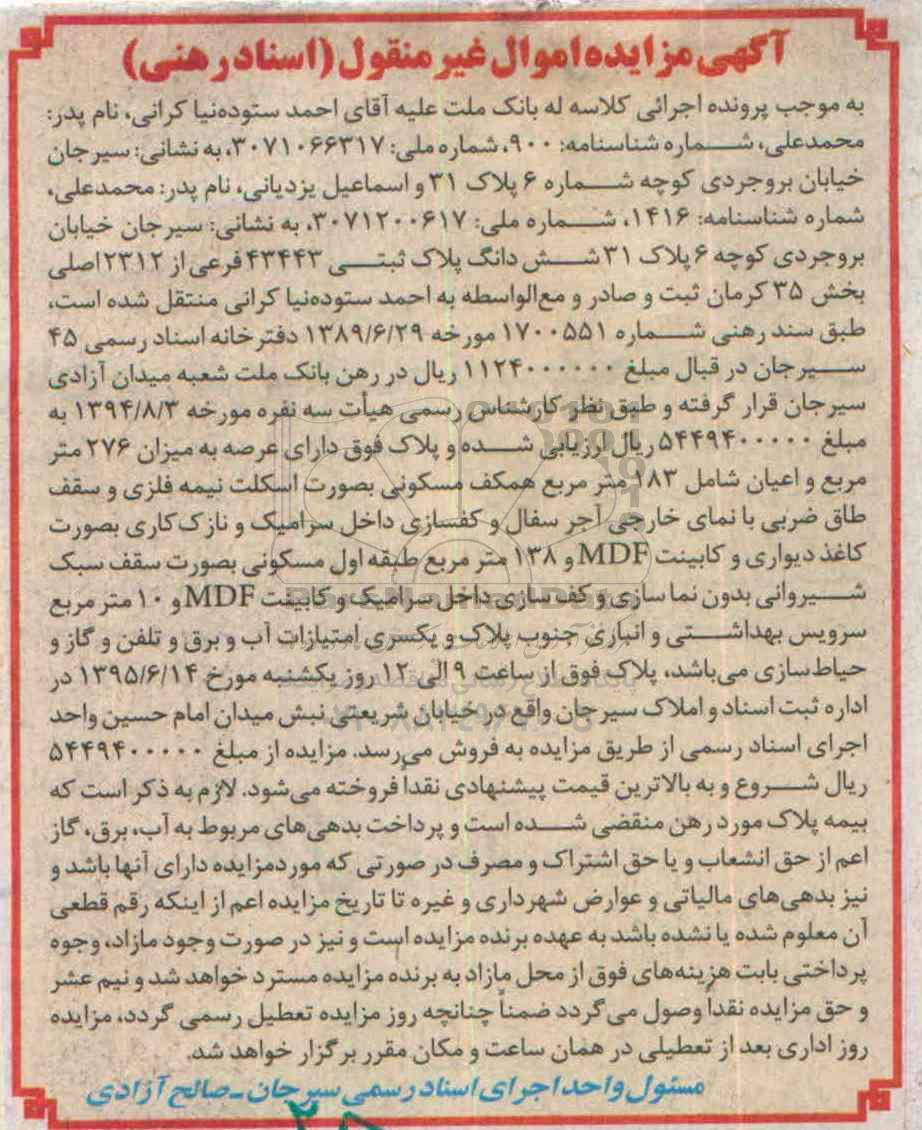 آگهی مزایده اموال غیر منقول (اسناد رهنی)
به موجب پرونده اجرائی کلاسه له بانک ملت علیه آقای احمد ستوده‌نیا کرانی، نام پدر:
محمدعلی، شماره شناسنامه: ۹۰۰، شماره ملی: ۳۰۷۱۰۶۶۳۱۷، به نشانی: سیرجان
خیابان بروجردی کوچه شماره ۶ پلاک ۳۱ و اسماعیل یزدیانی، نام پدر: محمدعلی،
شماره شناسنامه: ۱۴۱۶، شماره ملی: ۳۰۷۱۲۰۰۶۱۷، به نشانی: سیرجان خیابان
بروجردی کوچه ۶ پلاک ۳۱ شش دانگ پلاک ثبتی ۴۳۴۴۳ فرعی از ۲۳۱۲ اصلی
بخش ۳۵ کرمان ثبت و صادر و مع‌الواسطه به احمد ستوده‌نیا کرانی منتقل شده است،
طبق سند رهنی شماره ۱۷۰۰۵۵۱ مورخه ۱۳۸۹/۶/۲۹ دفترخانه اسناد رسمی ۴۵
سیرجان در قبال مبلغ ۱۱۲۴۰۰۰۰۰۰ ریال در رهن بانک ملت شعبه میدان آزادی
سیرجان قرار گرفته و طبق نظر کارشناس رسمی هیأت سه نفره مورخه ۱۳۹۴/۸/۳ به
مبلغ ۵۴۴۹۴۰۰۰۰۰ ریال ارزیابی شده و پلاک فوق دارای عرصه به میزان ۲۷۶ متر
مربع و اعیان شامل ۱۸۳ متر مربع همکف مسکونی بصورت اسکلت نیمه فلزی و سقف
طاق ضربی با نمای خارجی آجر سفال و کفسازی داخل سرامیک و نازک‌کاری بصورت
کاغذ دیواری و کابینت MDF و ۱۳۸ متر مربع طبقه اول مسکونی بصورت سقف سبک
شیروانی بدون نما سازی و کف سازی داخل سرامیک و کابینت MDF و ۱۰ متر مربع
سرویس بهداشتی و انباری جنوب پلاک و یکسری امتیازات آب و برق و تلفن و گاز و
حیاط‌سازی می‌باشد، پلاک فوق از ساعت ۹ الی ۱۲ روز یکشنبه مورخ ۱۳۹۵/۶/۱۴ در
اداره ثبت اسناد و املاک سیرجان واقع در خیابان شریعتی نبش میدان امام حسین واحد
اجرای اسناد رسمی از طریق مزایده به فروش می‌رسد. مزایده از مبلغ ۵۴۴۹۴۰۰۰۰۰
ریال شروع و به بالاترین قیمت پیشنهادی نقداً فروخته می‌شود. لازم به ذکر است که
بیمه پلاک مورد رهن منقضی شده است و پرداخت بدهی‌های مربوط به آب، برق، گاز
اعم از حق انشعاب و یا حق اشتراک و مصرف در صورتی که موردمزایده دارای آنها باشد و
نیز بدهی‌های مالیاتی و عوارض شهرداری و غیره تا تاریخ مزایده اعم از اینکه رقم قطعی
آن معلوم شده یا نشده باشد به عهده برنده مزایده است و نیز در صورت وجود مازاد، وجوه
پرداختی بابت هزینه‌های فوق از محل مازاد به برنده مزایده مسترد خواهد شد و نیم عشر
و حق مزایده نقداً وصول می‌گردد ضمناً چنانچه روز مزایده تعطیل رسمی گردد، مزایده
روز اداری بعد از تعطیلی در همان ساعت و مکان مقرر برگزار خواهد شد.
مسئول واحد اجرای اسناد رسمی سیرجان ـ صالح آزادی